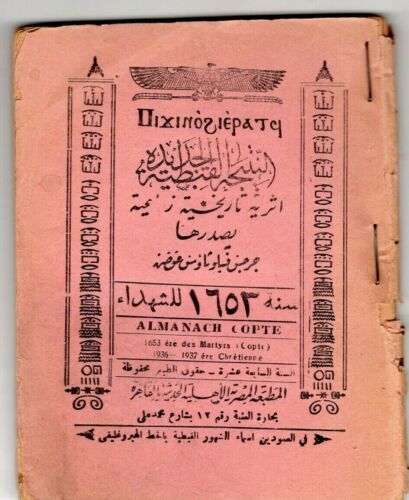 Ⲡⲓϫⲓⲛϭⲓⲉⲣⲁⲧϥ
النتيجة القبطية الجديدة
اثرية تاريخية زراعية
يصدرها
جرجس فيلوثاوس عوض
سنة ١٦٥٣ للشهداء
ALMANACH COPTE
1653 ére des Martyrs (Copte)
1936 - 1937 ére Chrètienne
السنة السابعة عشرة - حقوق الطبع محفوظة
المطبعة المصرية الأهلية الحديثة بالقاهرة
بحارة العنبة رقم ١٢ بشارع محمد علي
في العمودين اسماء الشهور القبطية بالخط الهيروغليفي